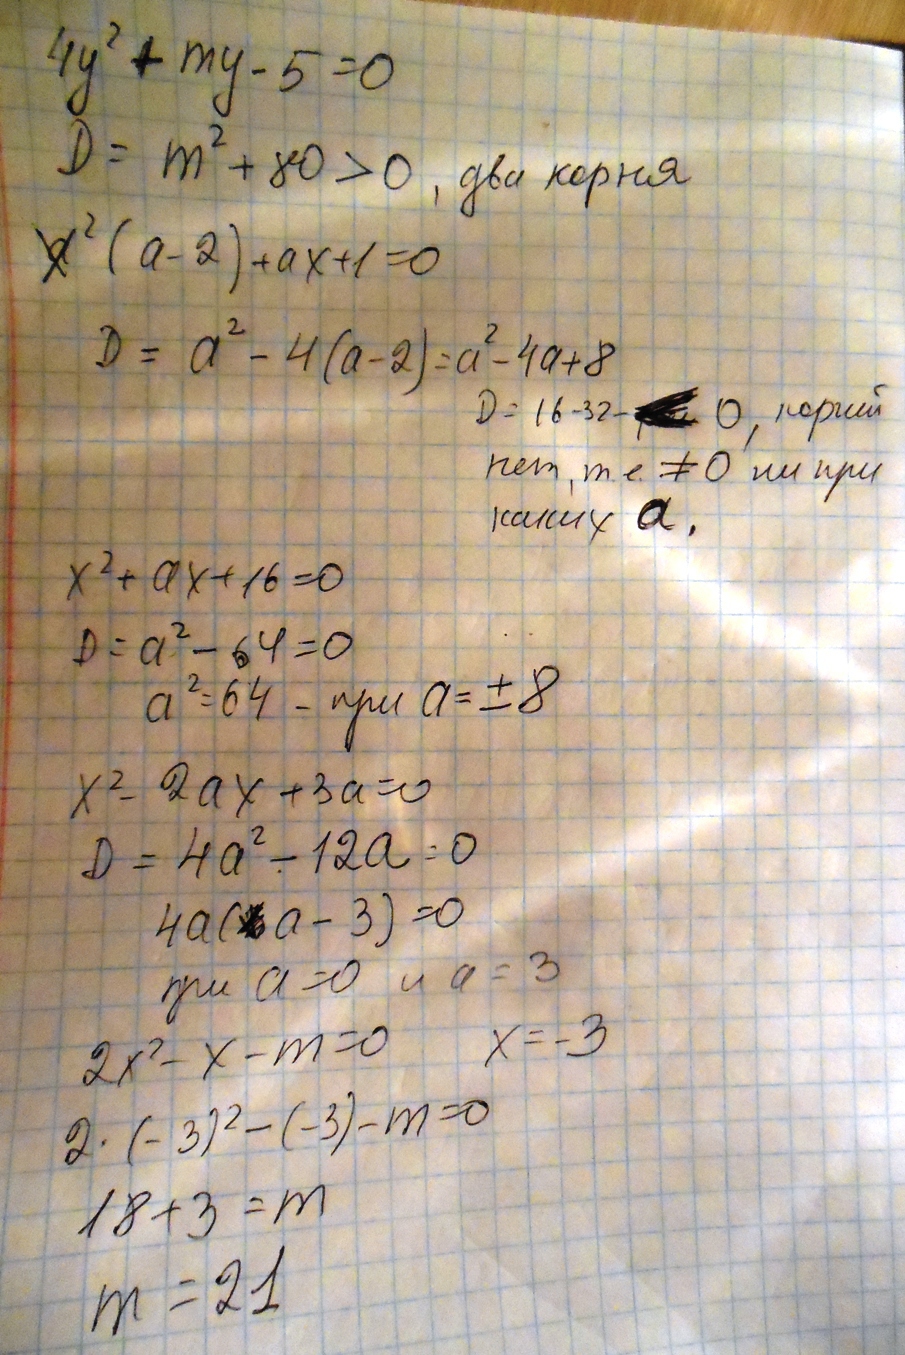 4y² + my - 5 = 0
D = m² + 80 > 0, два корня
x² (a - 2) + ax + 1 = 0
D = a² - 4(a - 2) = a² - 4a + 8
D = 16 - 32 - 0, корней
нет, т.е. ≠ 0 ни при
каких a.
x² + ax + 16 = 0
D = a² - 64 = 0
a² = 64 - при a = ±8
x² - 2ax + 3a = 0
D = 4a² - 12a = 0
4a(a - 3) = 0
при a = 0 и a = 3
2x² - x - m = 0 x = -3
2 · (-3)² - (-3) - m = 0
18 + 3 = m
m = 21